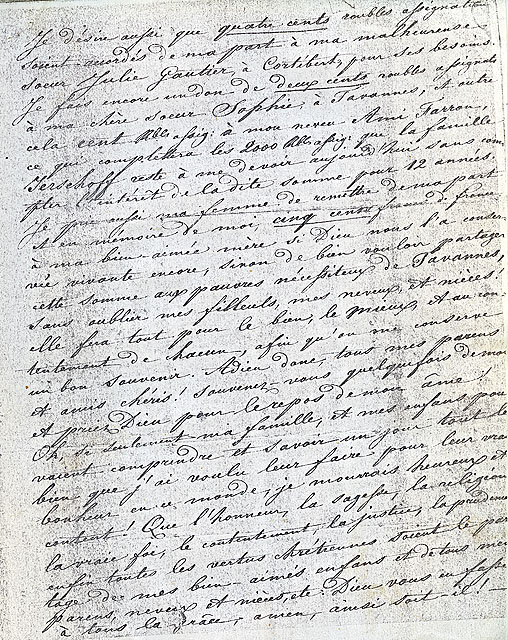 Je désire aussi que quatre cents roubles assignation
soient accordés de ma part à ma malheureuse
soeur Julie Gautier, à Cortébert, pour ses besoins.
Je fais encore un don de deux cents roubles assignats
à ma chère soeur Sophie, à Tavannes, et outre
cela cent Rbls assig: à mon neveu Ami Farron,
ce qui complettera les 2000 Rbls assig: que la famille
Jerschoff reste à me devoir aujourd'hui sans com
pter l'intérêt de la dite somme pour 12 années.
Je prie aussi ma femme de remettre de ma part
et en mémoire de moi, cinq cents francs de france
à ma bien-aimée mère si Dieu nous l'a conser-
vée vivante encore, sinon de bien vouloir partager
cette somme aux pauvres nécessiteux de Tavannes,
sans oublier mes filleuls, mes neveux, et nièces!
elle fera tout pour le bien, le mieux, et au con-
tentement de chacun, afin qu'on me conserve
un bon souvenir. Adieu donc, tous mes parens
et amis chéris! souvenez vous quelquefois de moi
et priez Dieu pour le repos de mon âme!
Oh, si seulement ma famille, et mes enfans pou
vaient comprendre et savoir un jour tout le
bien que j'ai voulu leur faire pour leur vrai
bonheur en ce monde, je mourrais heureux et
content! Que l'honneur, la sagesse, la religion
la vraie foi, le contentement, la justice, la prudence
enfin toutes les vertus chrétiennes soient le par
tage de mes bien-aimés enfans et de tous mes
parens, neveux et nièces, etc. Dieu vous en fasse
à tous la grâce, amen, ainsi soit-il!